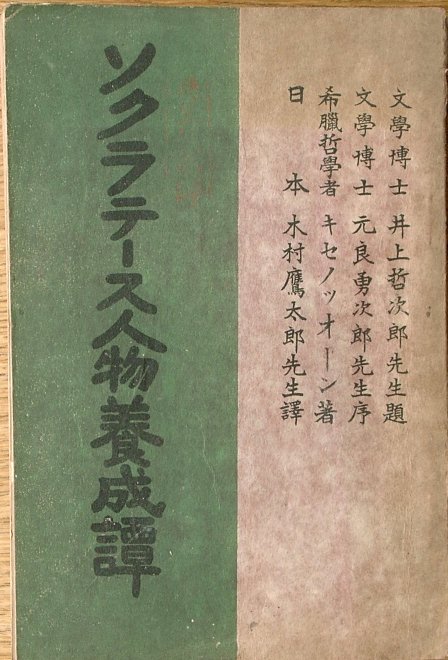 文學博士 井上哲次郎先生題
文學博士 元良勇次郎先生序
希臘哲學者 キセノッオーン著
日本 木村鷹太郎先生譯
ソクラテース人物養成譚